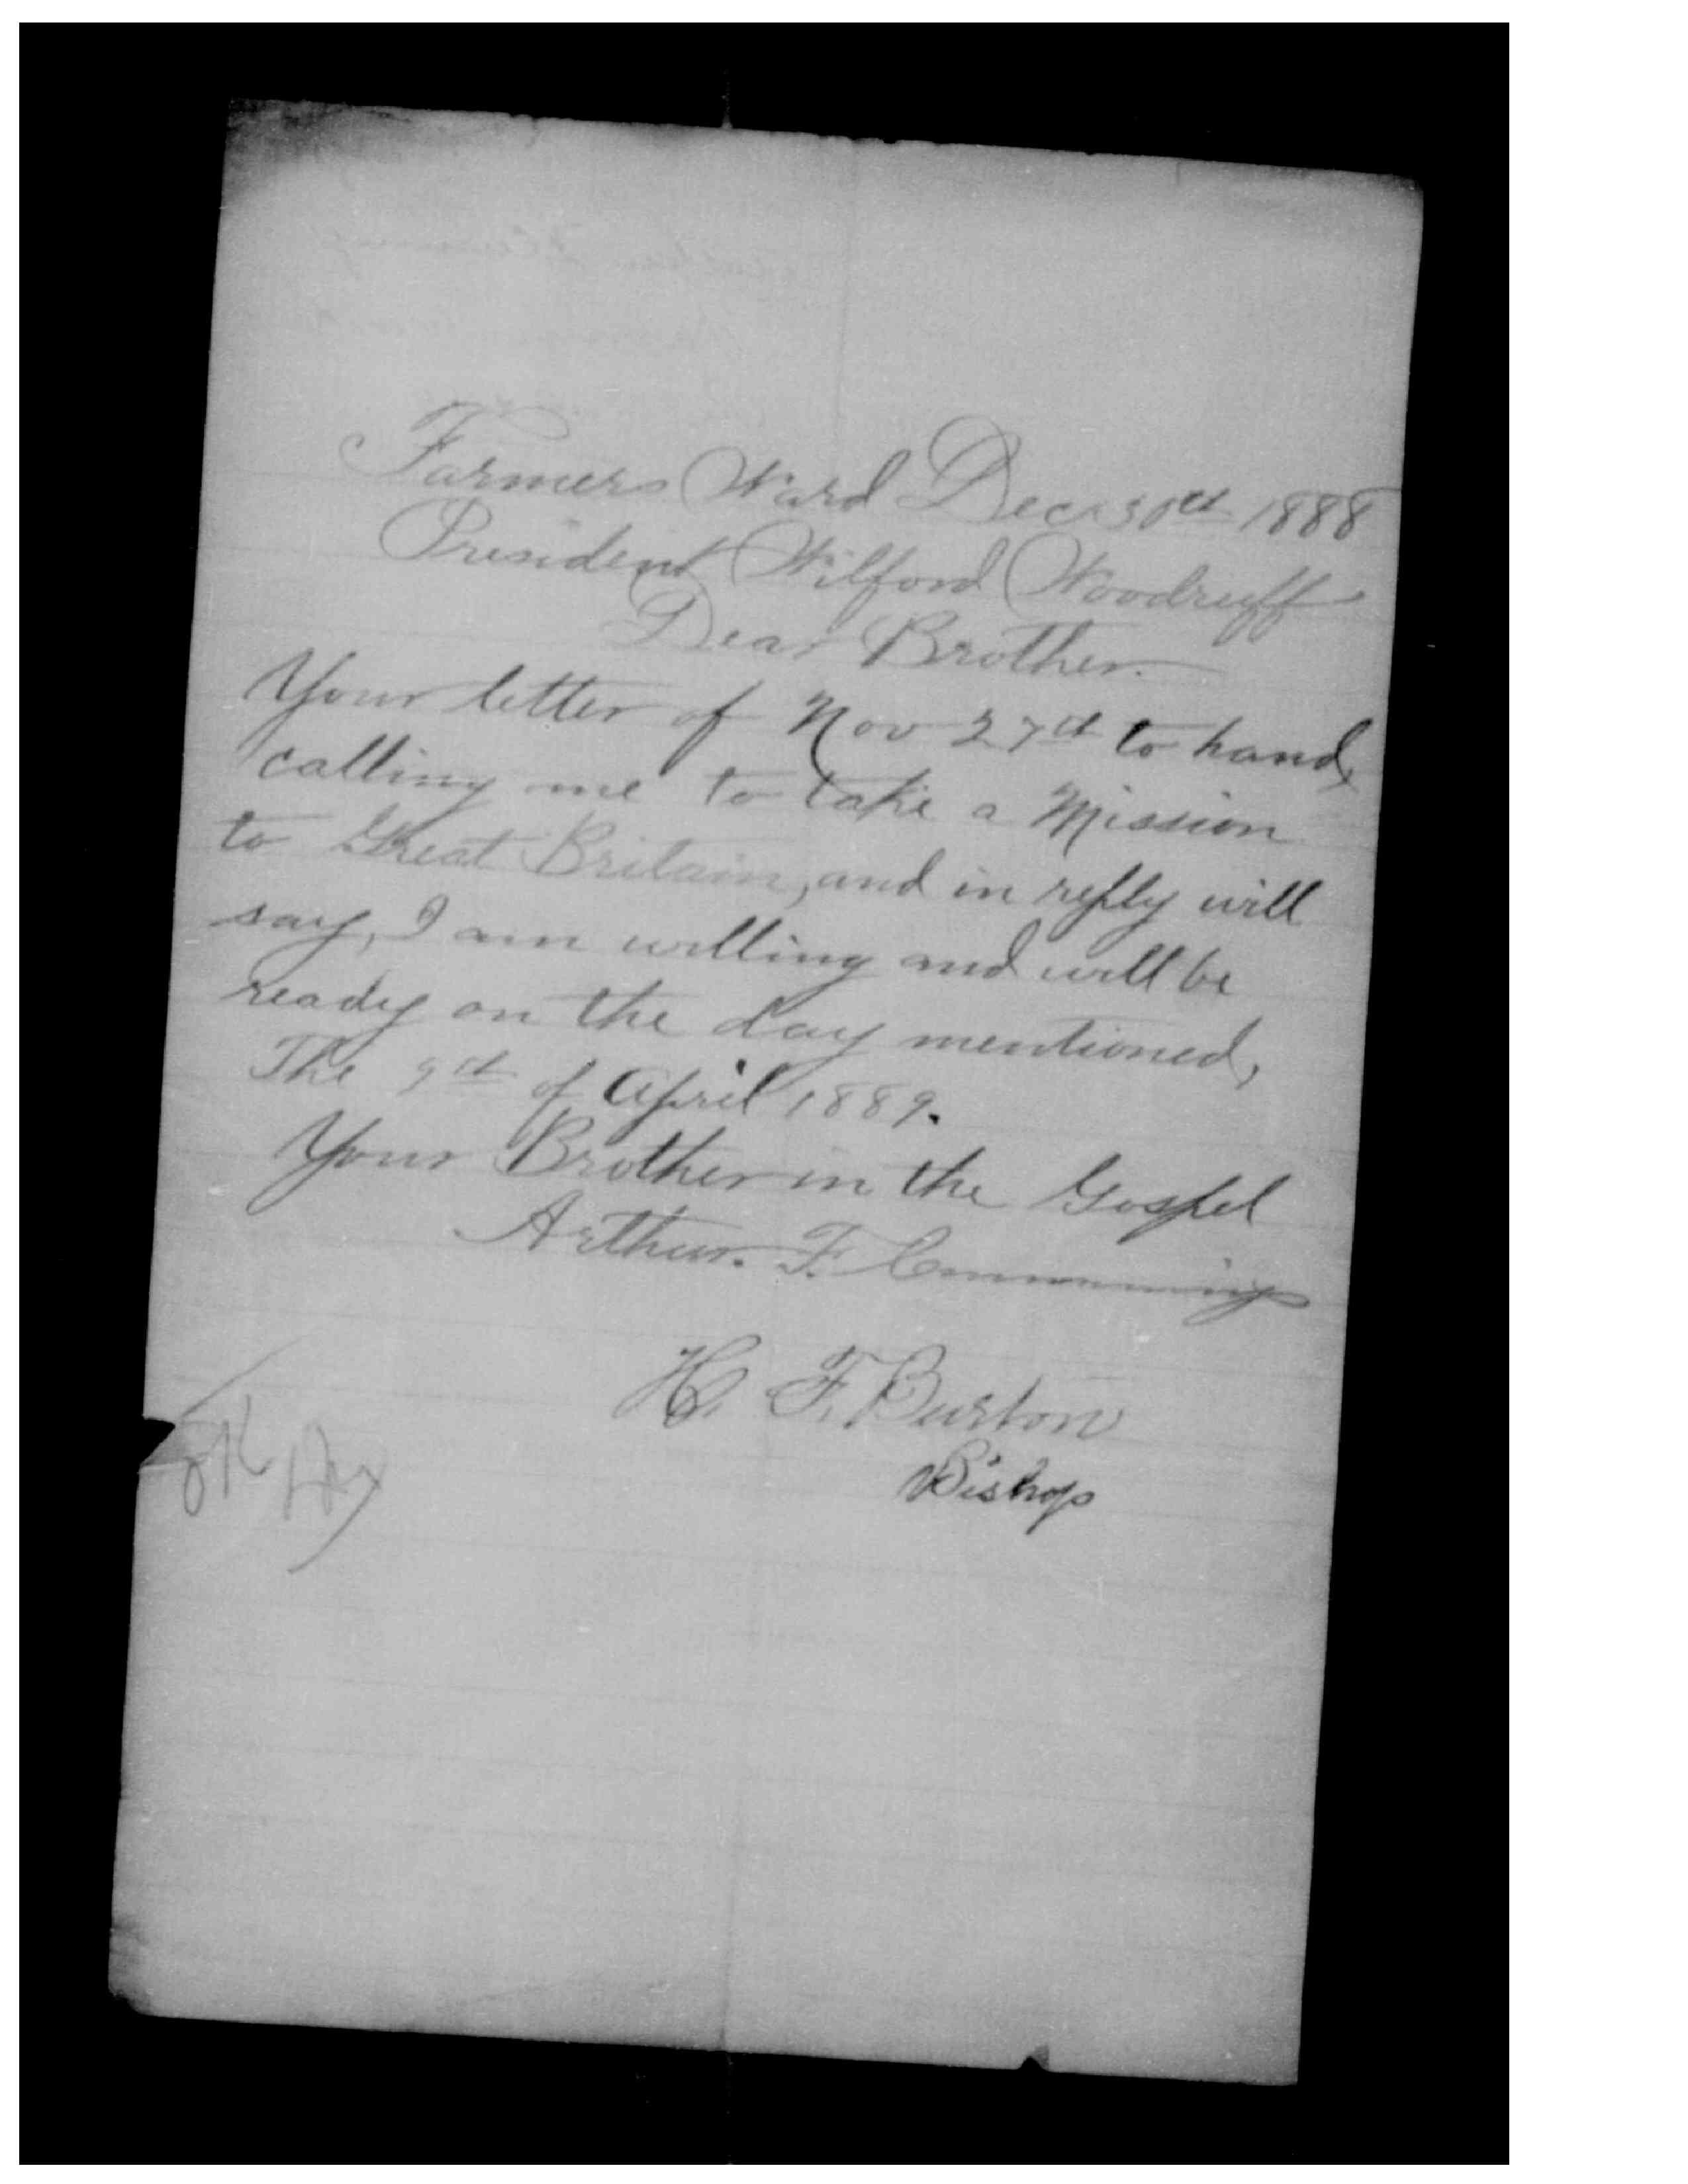 Farmers Ward Dec 30th 1888
President Wilford Woodruff
Dear Brother.
Your letter of Nov 27th to hand,
calling me to take a Mission
to Great Britain, and in reply will
say, I am willing and will be
ready on the day mentioned,
The 9th of April 1889.
Your Brother in the Gospel
Arthur. F. Cummings
H. F. Burton
Bishop
OK